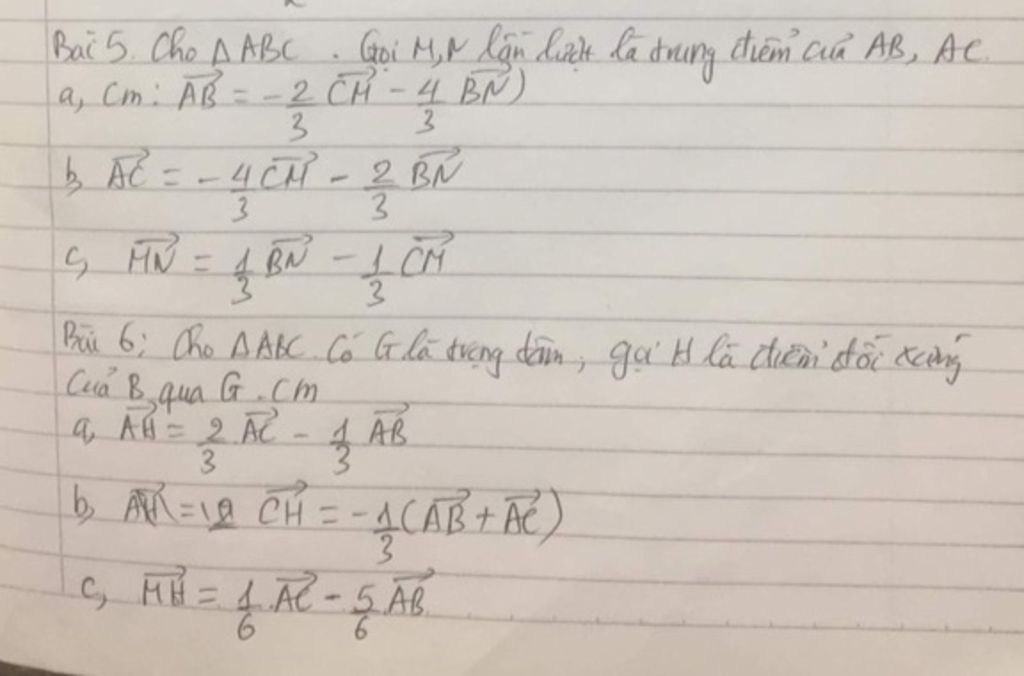 Bài 5. Cho △ABC. Gọi M, N lần lượt là trung điểm của AB, AC.
a, Cm: $\overrightarrow{AB} = -\frac{2}{3}\overrightarrow{CM} - \frac{4}{3}\overrightarrow{BN}$)
b, $\overrightarrow{AC} = -\frac{4}{3}\overrightarrow{CM} - \frac{2}{3}\overrightarrow{BN}$
c, $\overrightarrow{MN} = \frac{1}{3}\overrightarrow{BN} - \frac{1}{3}\overrightarrow{CM}$
Bài 6: Cho △ABC. Có G là trọng tâm, gọi H là điểm đối xứng
của B qua G. Cm
a, $\overrightarrow{AH} = \frac{2}{3}\overrightarrow{AC} - \frac{1}{3}\overrightarrow{AB}$
b, $\overrightarrow{CH} = -\frac{1}{3}(\overrightarrow{AB} + \overrightarrow{AC})$
c, $\overrightarrow{MH} = \frac{1}{6}\overrightarrow{AC} - \frac{5}{6}\overrightarrow{AB}$